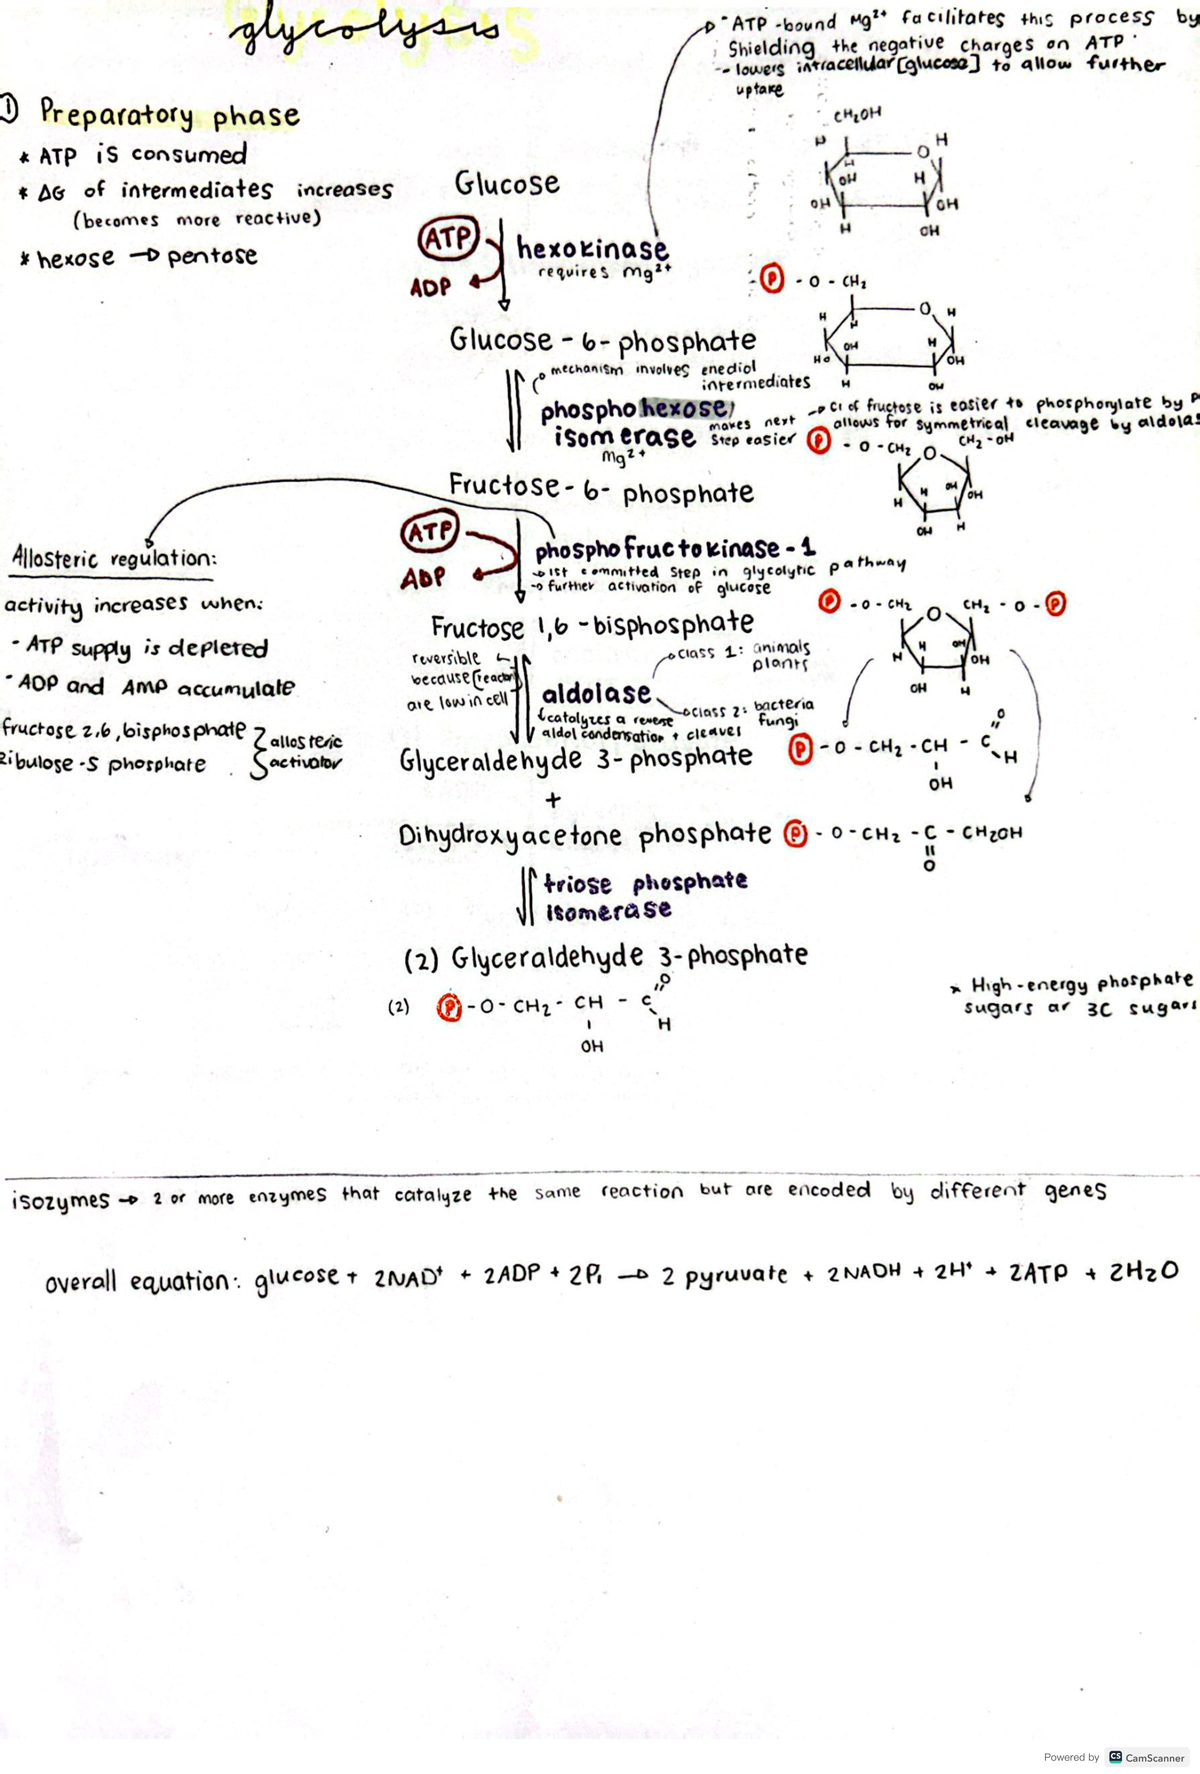 glycolysis
① Preparatory phase
* ATP is consumed
* ΔG of intermediates increases
(becomes more reactive)
* hexose → pentose
"ATP-bound Mg²⁺ facilitates this process by
shielding the negative charges on ATP
- lowers intracellular [glucose] to allow further
uptake
Glucose
ATP
ADP
hexokinase
requires Mg²⁺
CH₂OH
H O H
H OH H
OH OH
H OH
Glucose-6-phosphate
P - O - CH₂
H O H
H OH H
HO OH
H OH
mechanism involves enediol
intermediates
phosphohexose
isomerase
Mg²⁺
makes next
step easier
→ C1 of fructose is easier to phosphorylate by P
allows for symmetrical cleavage by aldolas
Fructose-6-phosphate
P - O - CH₂ O CH₂-OH
H H OH OH
OH H
ATP
ADP
phosphofructokinase-1
→ 1st committed step in glycolytic pathway
→ further activation of glucose
Allosteric regulation:
activity increases when:
- ATP supply is depleted
- ADP and AMP accumulate
fructose 2,6,bisphosphate
ribulose-5 phosphate
allosteric
activator
Fructose 1,6-bisphosphate
P - O - CH₂ O CH₂ - O - P
H H OH OH
OH H
reversible
because [reactan]
are low in cell
aldolase
class 1: animals
plants
class 2: bacteria
fungi
catalyzes a reverse
aldol condensation + cleaves
Glyceraldehyde 3-phosphate
P - O - CH₂ - CH - C
O
H
OH
+
Dihydroxyacetone phosphate
P - O - CH₂ - C - CH₂OH
O
triose phosphate
isomerase
(2) Glyceraldehyde 3-phosphate
(2) P - O - CH₂ - CH - C
O
H
OH
* High-energy phosphate
sugars ar 3C sugars
isozymes → 2 or more enzymes that catalyze the same reaction but are encoded by different genes
overall equation: glucose + 2NAD⁺ + 2ADP + 2Pi → 2 pyruvate + 2NADH + 2H⁺ + 2ATP + 2H₂O
Powered by CS CamScanner